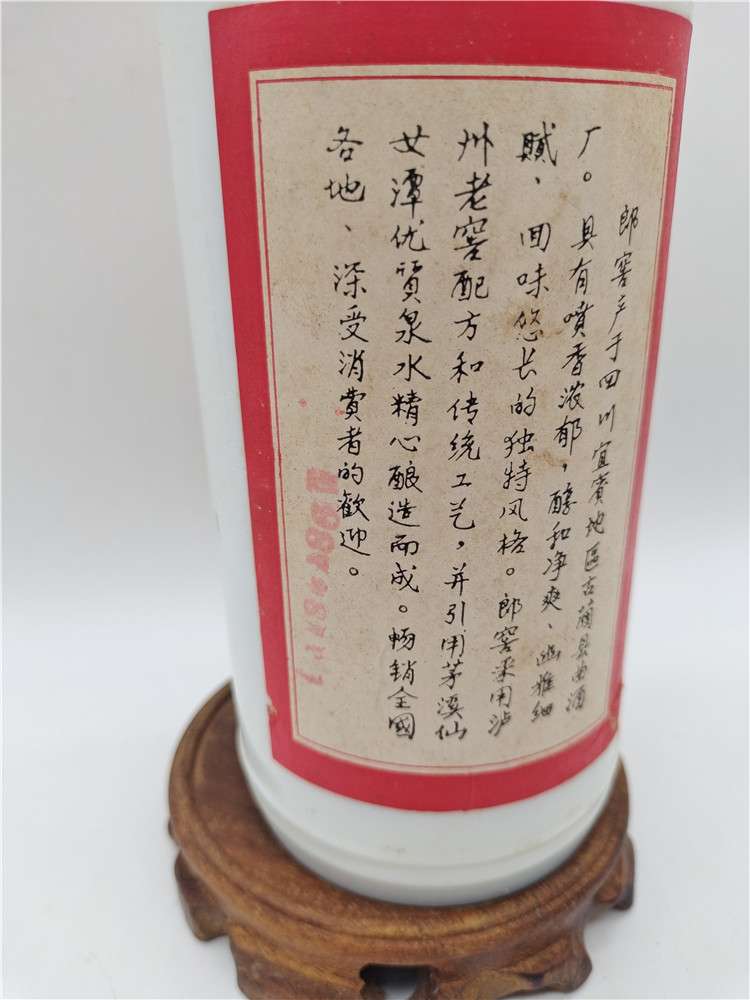 郎窖产于四川宜賓地區古蔺县曲酒
厂。具有噴香浓郁，醇和净爽、幽雅细
腻、回味悠长的独特风格。郎窖采用泸
州老窖配方和传统工艺，并引用茅溪仙
女潭优質泉水精心酿造而成。畅销全國
各地、深受消費者的歡迎。